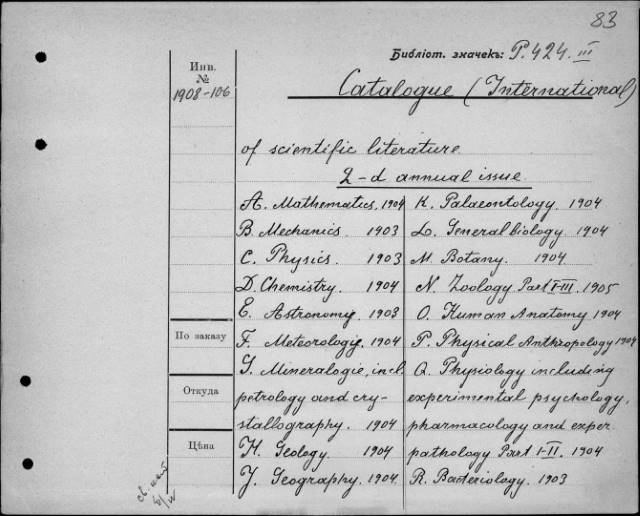 83
Библіот. значекъ: P. 424. III
Инв.
№
1908-106
Catalogue (International)
of scientific literature.
2-d annual issue.
A. Mathematics. 1904
B. Mechanics. 1903
C. Physics. 1903
D. Chemistry. 1904
E. Astronomy. 1903
F. Meteorologie. 1904
G. Mineralogie, incl.
petrology and cry-
stallography. 1904
H. Geology 1904
J. Geography. 1904.
K. Palaeontology. 1904
L. General biology 1904
M. Botany. 1904
N. Zoology Part I-III. 1905
O. Human Anatomy 1904
P. Physical Anthropology 1904
Q. Physiology including
experimental psychology,
pharmacology and exper.
pathology Part I-II. 1904
R. Bacteriology. 1903
По заказу
Откуда
Цѣна